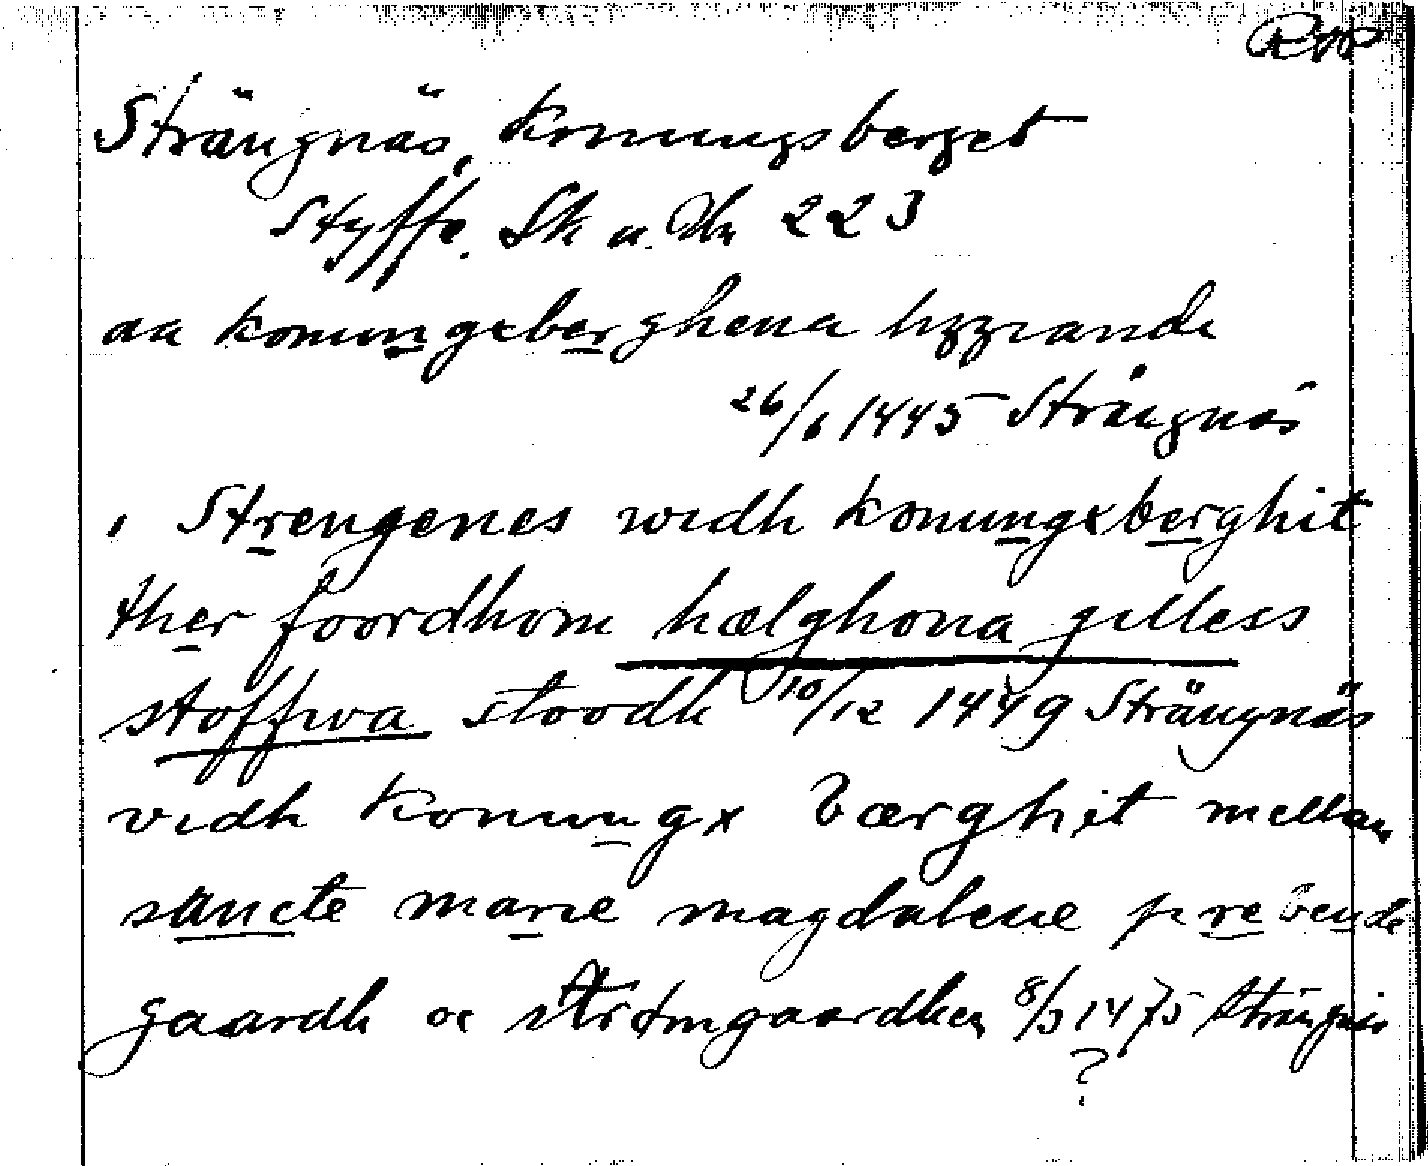 Rop
Strängnäs, Konungsberget
Styffe. Sk u. Un 223
aa konungxberghena liggiande
26/6 1445 Strängnäs
i Strengenes widh konungxberghit
ther foordhom hælghona gilless
stoffwa stoodh 10/12 1449 Strängnäs
vidh konungx bærghit mellan
sancte marie magdalene prebende
gaardh oc strömgaardhen 8/3 1475 Strängnäs
?